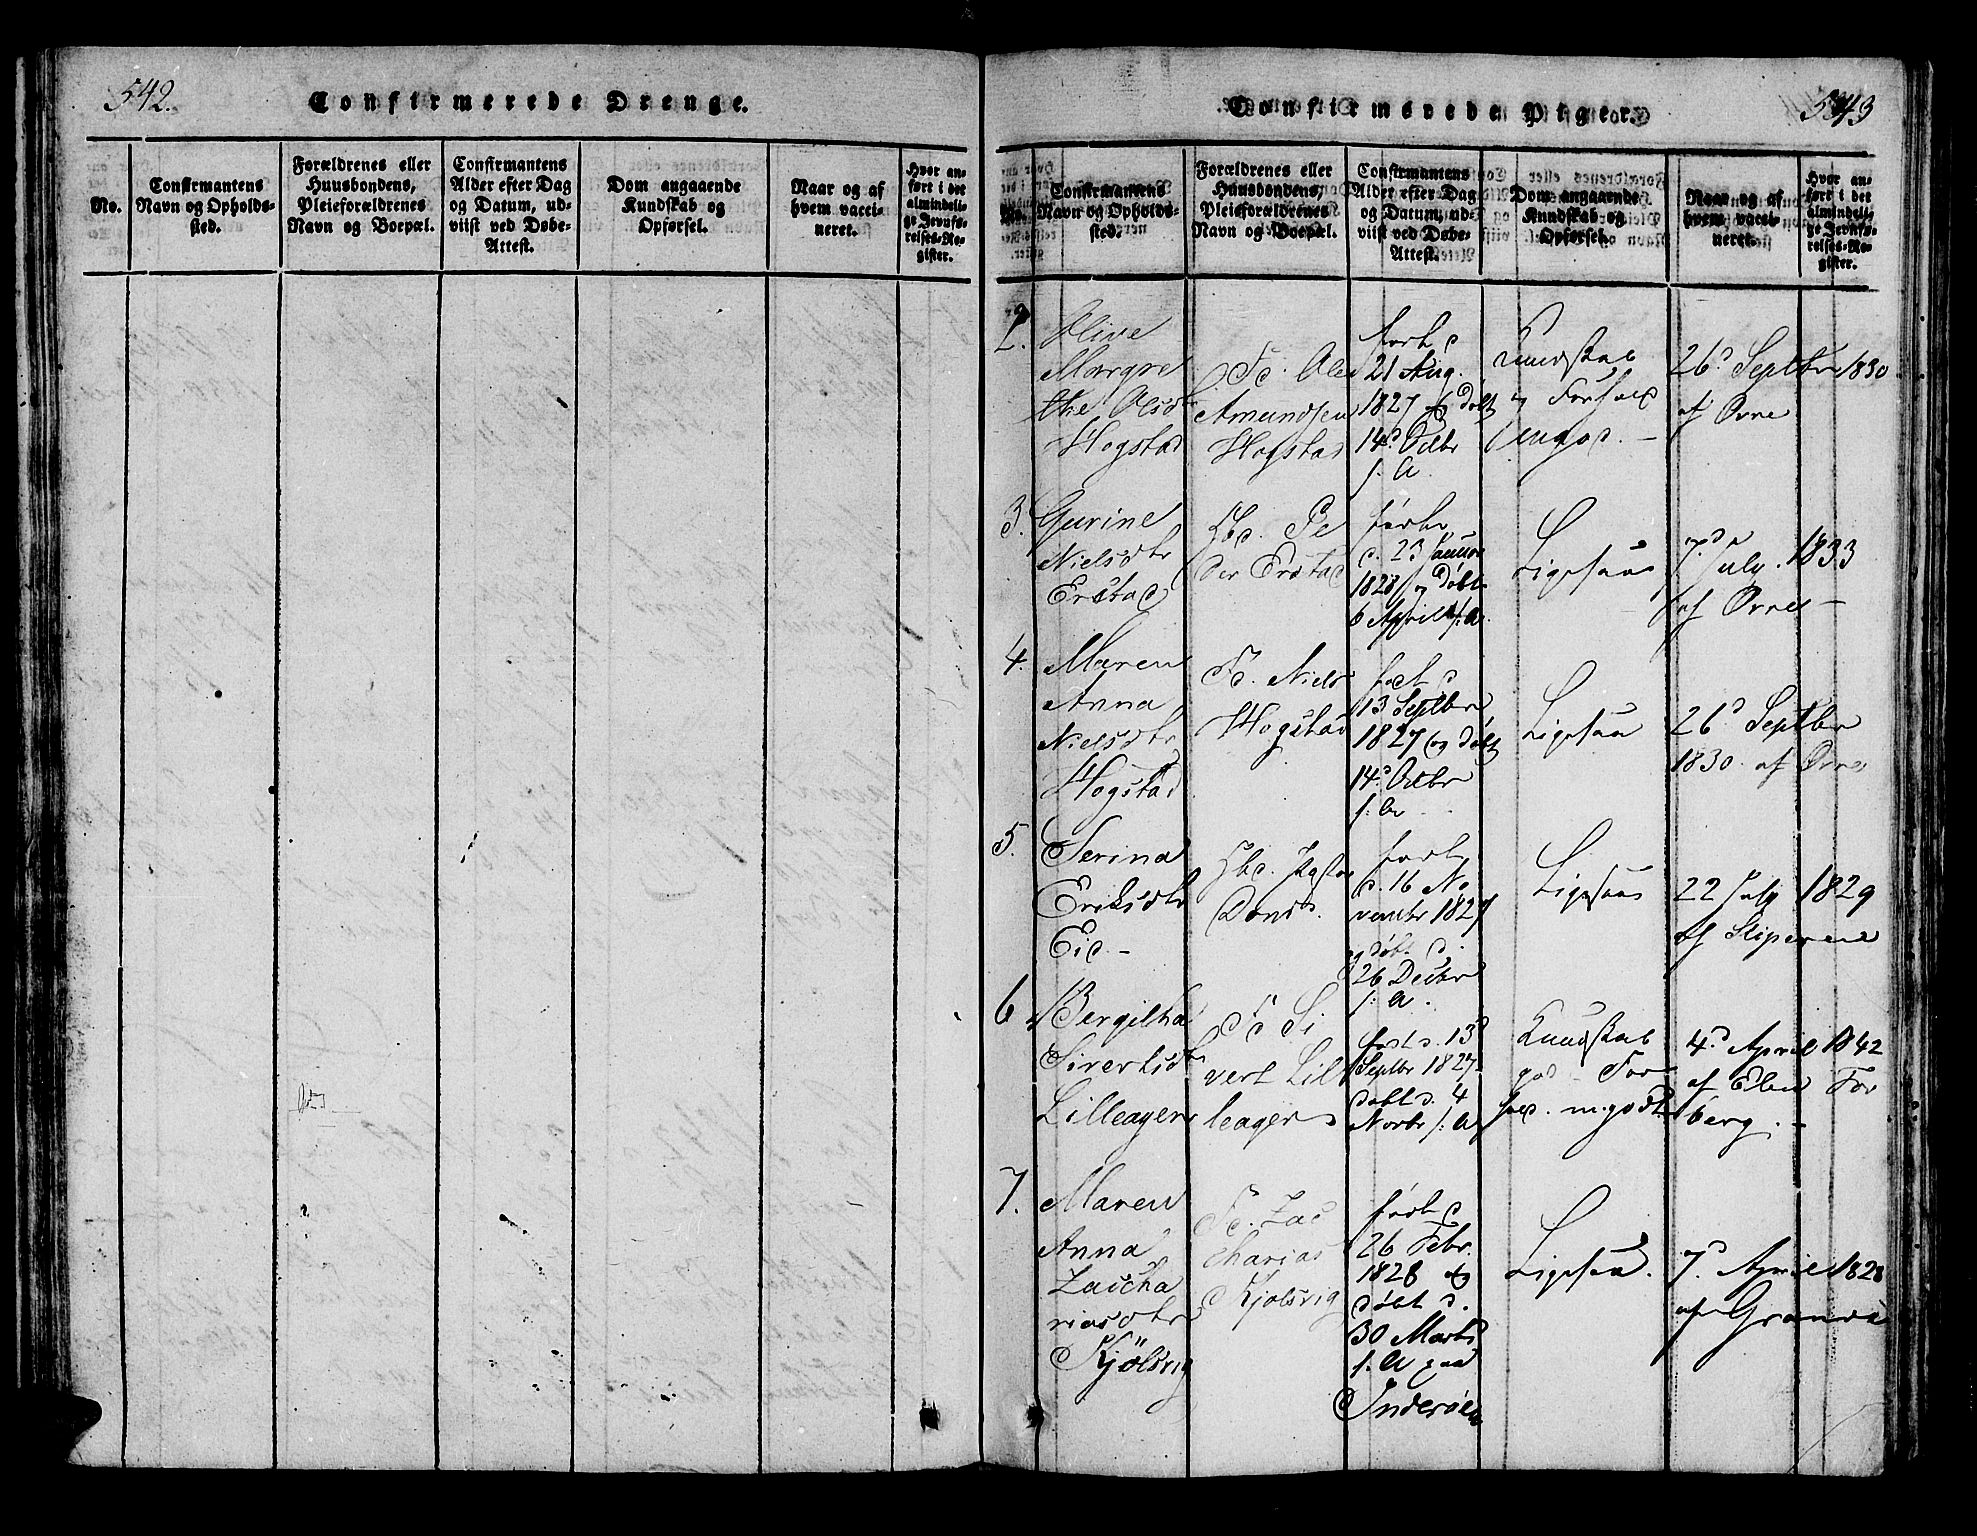 542.
Confirmerede Drenge.
No.
Confirmantens
Navn og Opholds-
sted.
Forældrenes eller
Huusbondens,
Pleieforældrenes
Navn og Boepæl.
Confirmantens
Alder efter Dag
og Datum, ud-
viist ved Døbe-
Attest.
Dom angaaende
Kundskab og
Opførsel.
Naar og af
hvem vacci-
neret.
Hvor an-
ført i det
almindeli-
ge Jevnfø-
relses-Re-
gister.
543
Confirmerede Piger.
No.
Confirmantens
Navn og Opholds-
sted.
Forældrenes eller
Huusbondens,
Pleieforældrenes
Navn og Boepæl.
Confirmantens
Alder efter Dag
og Datum, ud-
viist ved Døbe-
Attest.
Dom angaaende
Kundskab og
Opførsel.
Naar og af
hvem vacci-
neret.
Hvor an-
ført i det
almindeli-
ge Jevnfø-
relses-Re-
gister.
2.
Olive
Margre
the Olsdtr
Hogstad
Fd. Ole
Amundsen
Hogstad
født d
21 Aug.
1827 og døbt
14d Octbr
s. A.
Kundskab
og Forhold
26d Septbr 1830
af Øvne
3.
Gurine
Nielsdtr
Erstad
Hbd. Pe
der Erstad
født
d. 23 Januar
1828 og døbt
6 April s. A.
Ligesaa
7d July 1833
af Øvne
4.
Maren
Anna
Nielsdtr
Hogstad
Fd. Niels
Hogstad
født d
13 Septbr
1827 og døbt
14d Octbr
s. A.
Ligesaa
26d Septbr
1830 af Øvne
5.
Serina
Eriksdtr
Eid
Hbd.
født
d. 16 No
vembr 1827
og døbt d.
26 Decbr
s. A.
Ligesaa
22 July 1829
af
6.
Bergitha
Sivertsdtr
Lilleager
Fd Si
vert Lil
leager
født d. 13
Septbr 1827
døbt d. 4
Novbr s. A
Kundskab
god For
hold m. godt
4d April 1842
af For
berg.
7.
Maren
Anna
Zacha
riasdtr
Kjölsvig
Fd. Zac
harias
Kjolsvig
født d
26 Febr.
1828 og
döbt d.
30 Marts
s. A paa
Inderøen
Ligesaa.
7d April 1828
af